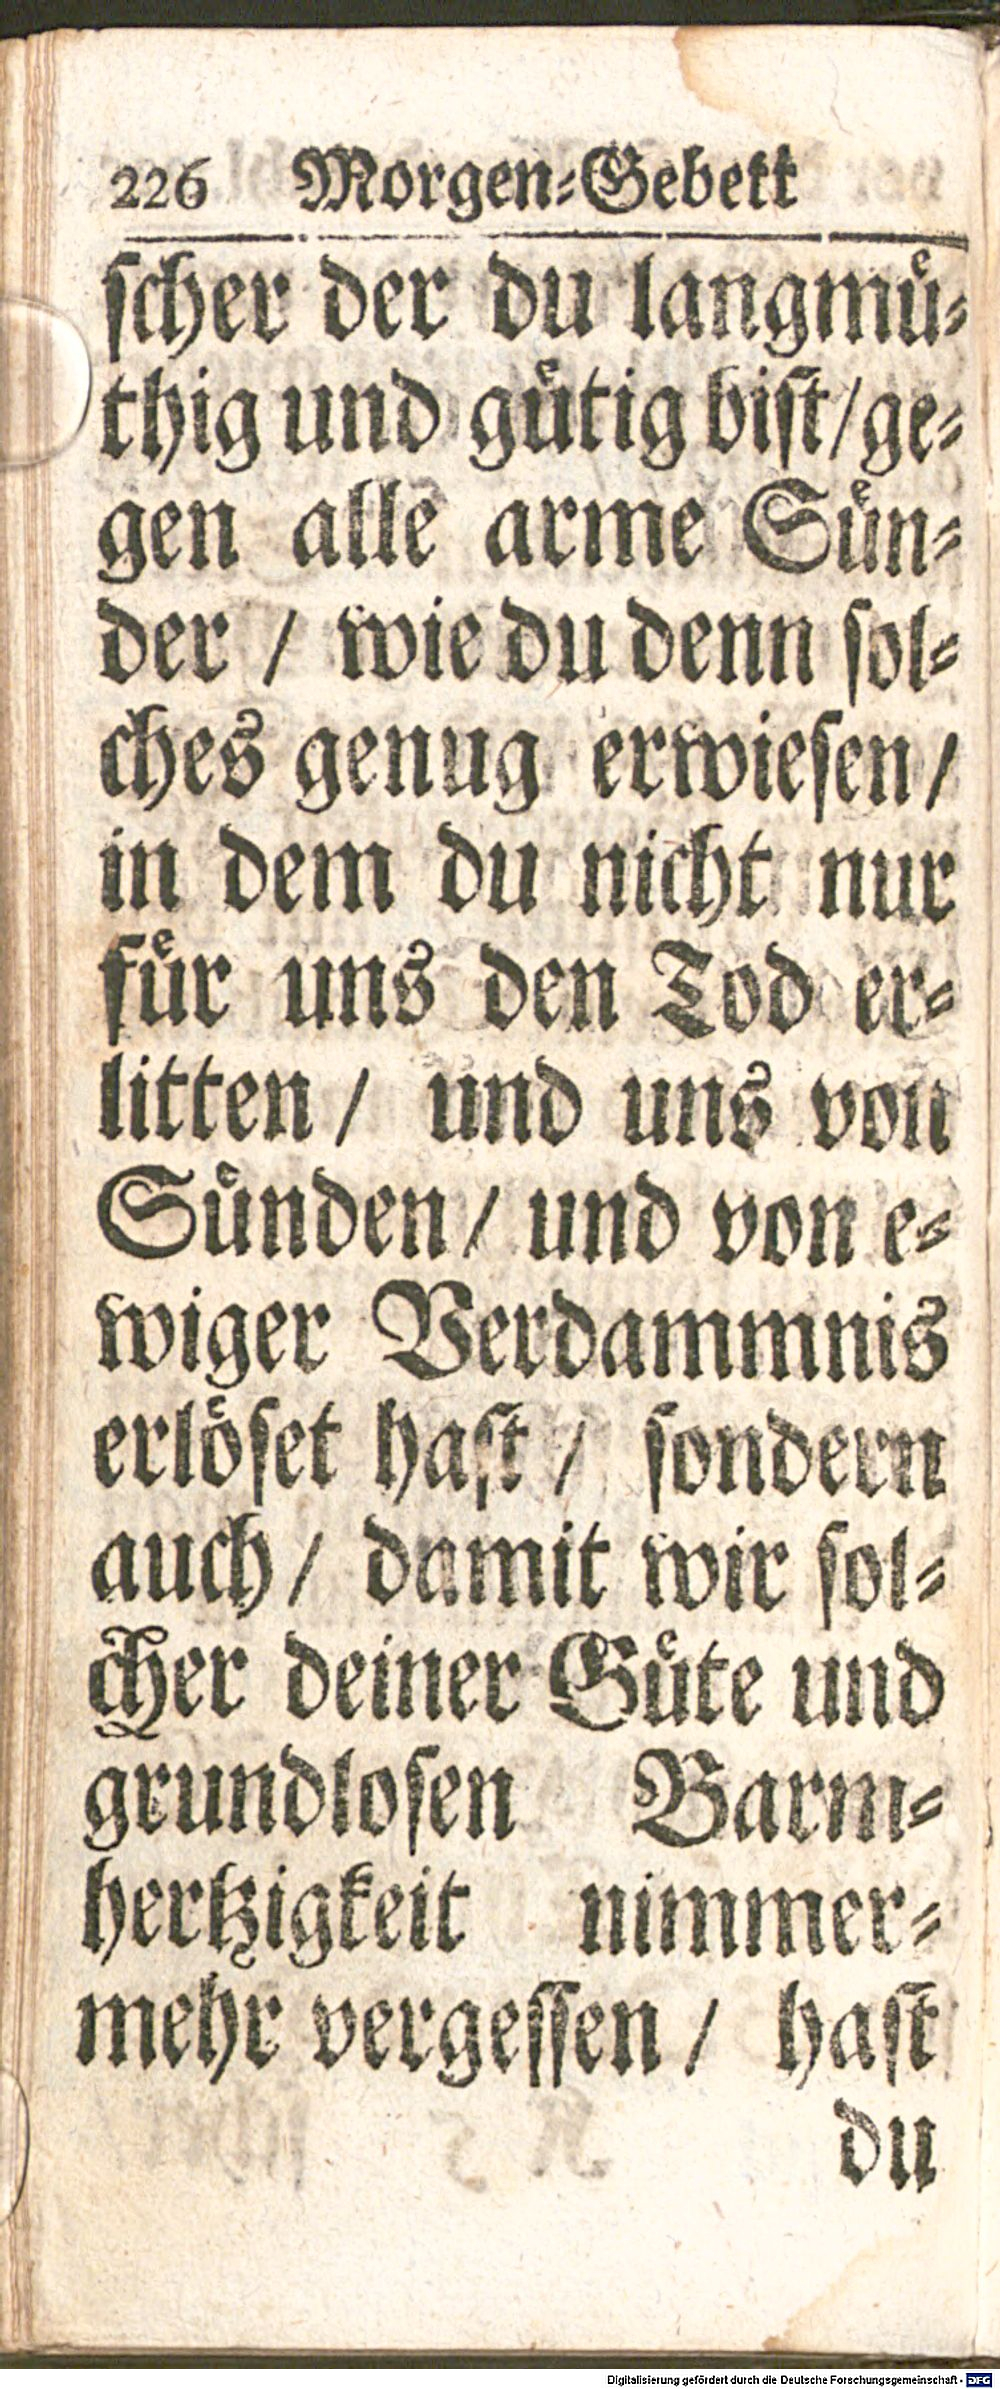 226 Morgen-Gebett
ſcher der du langmuͤ-
thig und guͤtig biſt/ ge-
gen alle arme Suͤn-
der / wie du denn ſol-
ches genug erwieſen/
in dem du nicht nur
fuͤr uns den Tod er-
litten / und uns von
Suͤnden / und von e-
wiger Verdammnis
erloͤſet haſt / ſondern
auch / damit wir ſol-
cher deiner Guͤte und
grundloſen Barm-
hertzigkeit nimmer-
mehr vergeſſen / haſt
du
Digitalisierung gefördert durch die Deutsche Forschungsgemeinschaft - DFG